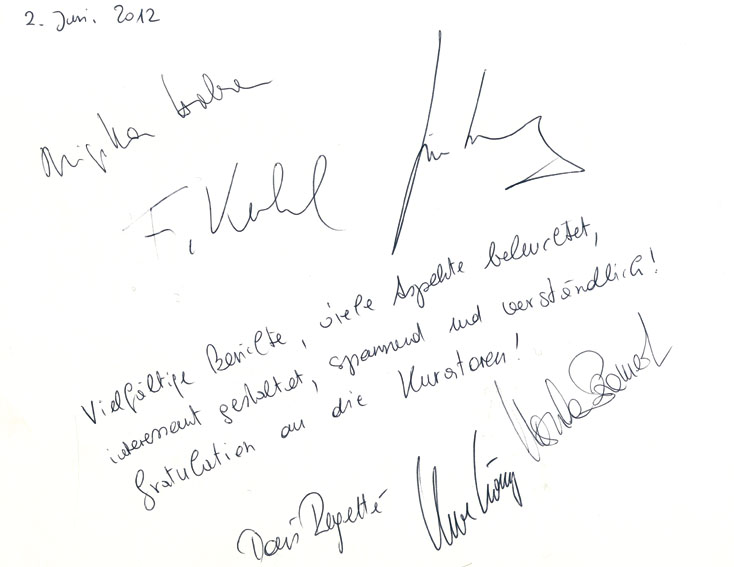 2. Juni. 2012
F. Kuhl
Vielfältige Berichte, viele Aspekte beleuchtet,
interessant gestaltet, spannend und verständlich!
Gratulation an die Kuratoren!
Doris
Uwe König